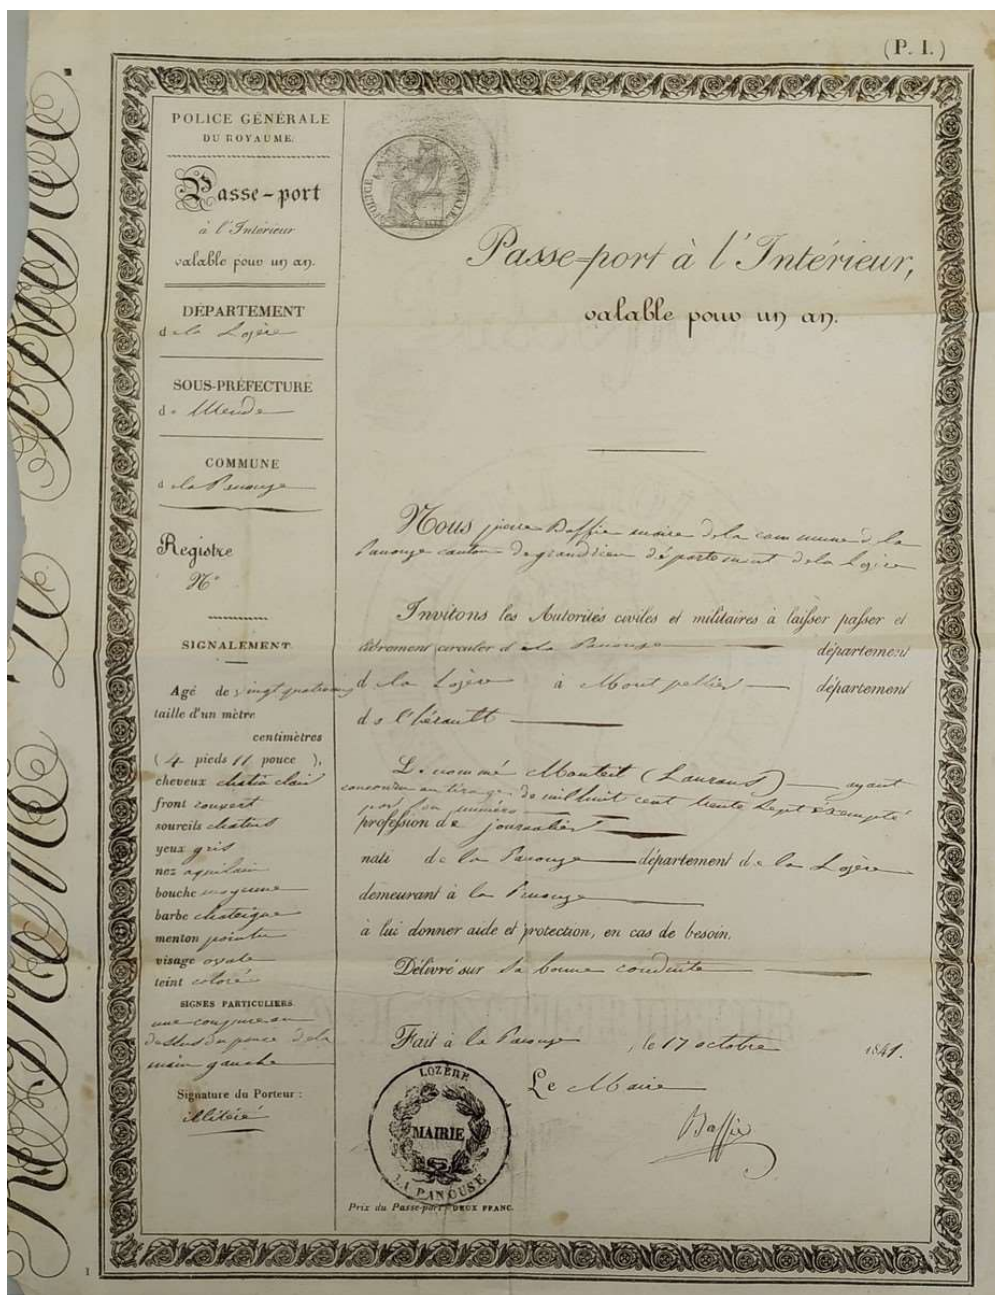 (P. I.)
POLICE GÉNÉRALE
DU ROYAUME.
Passe-port
à l'Intérieur
valable pour un an.
DÉPARTEMENT
de la Lozère
SOUS-PRÉFECTURE
de Mende
COMMUNE
de la Panouze
Registre
N°
SIGNALEMENT
Agé de vingt quatre ans
taille d'un mètre
centimètres
(4 pieds 11 pouce),
cheveux chatin clair
front couvert
sourcils chatins
yeux gris
nez aquilain
bouche moyenne
barbe chateigne
menton pointu
visage ovale
teint coloré
SIGNES PARTICULIERS.
une coupure au
dessus du pouce de la
main gauche
Signature du Porteur :
illitéré
POLICE GÉNÉRALE
Passe-port à l'Intérieur,
valable pour un an.
Nous pierre Baffie maire de la commune de la
Panouze canton de grandrieu département de la Lozère
Invitons les Autorités civiles et militaires à laisser passer et
librement circuler de la Panouze département
de la Lozère à Montpellier département
de l'hérault
Le nommé Monteil (Laurans) ayant
concouru au tirage de mil huit cent trente sept éxempté
par son numéro
profession de journalier
natif de la Panouze département de la Lozère
demeurant à la Panouze
à lui donner aide et protection, en cas de besoin.
Délivré sur sa bonne conduite
Fait à la Panouze, le 17 octobre 1841.
Le Maire
Baffie
LOZÈRE
MAIRIE
LA PANOUSE
Prix du Passe-port, DEUX FRANC.
1